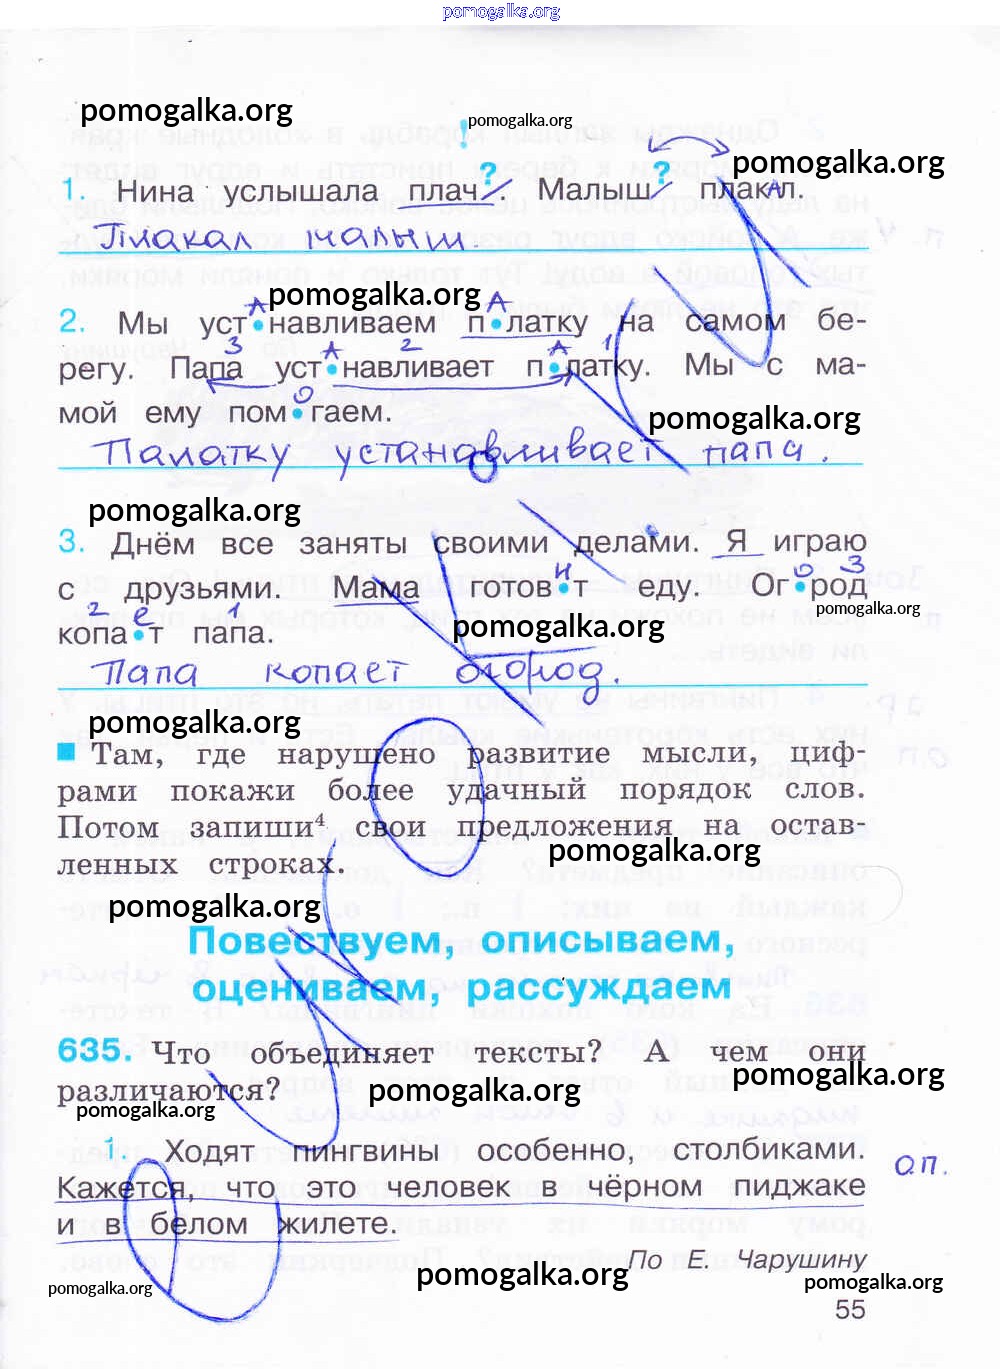 pomogalka.org
pomogalka.org
pomogalka.org
pomogalka.org
1. Нина услышала плач. Малыш плакал.
Плакал малыш.
pomogalka.org
2. Мы устАнавливаем пАлатку на самом бе-
3 2 1
регу. Папа устАнавливает пАлатку. Мы с ма-
мой ему помОгаем.
pomogalka.org
Палатку устанавливает папа.
pomogalka.org
3. Днём все заняты своими делами. Я играю
с друзьями. Мама готовИт еду. ОгОрод
2 1 3
pomogalka.org
копаЕт папа.
pomogalka.org
Папа копает огород.
pomogalka.org
Там, где нарушено развитие мысли, циф-
рами покажи более удачный порядок слов.
Потом запиши⁴ свои предложения на остав-
ленных строках.
pomogalka.org
pomogalka.org
Повествуем, описываем,
оцениваем, рассуждаем
635. Что объединяет тексты? А чем они
различаются?
pomogalka.org
pomogalka.org
pomogalka.org
1. Ходят пингвины особенно, столбиками.
оп.
Кажется, что это человек в чёрном пиджаке
и в белом жилете.
По Е. Чарушину
pomogalka.org
pomogalka.org
pomogalka.org
55